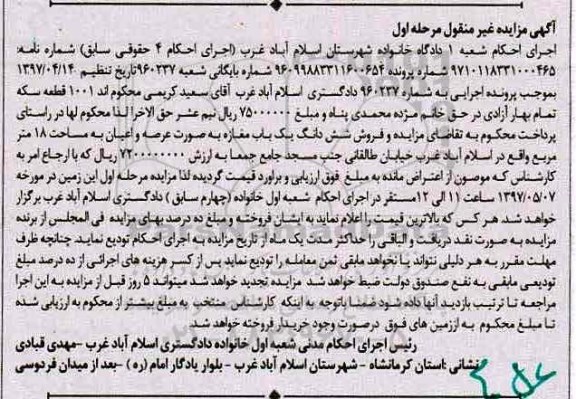 آگهی مزایده غیر منقول مرحله اول
اجرای احکام شعبه 1 دادگاه خانواده شهرستان اسلام آباد غرب (اجرای احکام 4 حقوقی سابق) شماره نامه:
9710118331000465 شماره پرونده 9609988331600654 شماره بایگانی شعبه 960237 تاریخ تنظیم 1397/04/14
بموجب پرونده اجرایی به شماره 960237 دادگستری اسلام آباد غرب آقای سعید کریمی محکوم اند 1001 قطعه سکه
تمام بهار آزادی در حق خانم مژده محمدی پناه و مبلغ 75000000 ریال نیم عشر حق الاجرا لذا محکوم لها در راستای
پرداخت محکوم به تقاضای مزایده و فروش شش دانگ یک باب مغازه به صورت عرصه و اعیان به مساحت 18 متر
مربع واقع در اسلام آباد غرب خیابان طالقانی جنب مسجد جامع جمعا به ارزش 7200000000 ریال که با ارجاع امر به
کارشناس که مصون از اعتراض مانده به مبلغ فوق ارزیابی و براورد قیمت گردیده لذا مزایده مرحله اول این زمین در مورخه
1397/05/07 ساعت 11 الی 12 مستقر در اجرای احکام شعبه اول خانواده (چهارم سابق) دادگستری اسلام آباد غرب برگزار
خواهد شد. هر کس که بالاترین قیمت را اعلام نماید به ایشان فروخته و مبلغ ده درصد بهای مزایده فی المجلس از برنده
مزایده به صورت نقد دریافت و الباقی را حداکثر مدت یک ماه از تاریخ مزایده به اجرای احکام تودیع نماید. چنانچه ظرف
مهلت مقرر به هر دلیلی نتواند یا نخواهد مابقی ثمن معامله را تودیع نماید پس از کسر هزینه های اجرائی از ده درصد مبلغ
تودیعی مابقی به نفع صندوق دولت ضبط خواهد شد مزایده تجدید خواهد شد میتواند 5 روز قبل از مزایده به این اجرا
مراجعه تا ترتیب بازدید آنها داده شود ضمنا باتوجه به اینکه کارشناس منتخب به مبلغ بیشتر از محکوم به ارزیابی شده
تا مبلغ محکوم به اززمین های فوق درصورت وجود خریدار فروخته خواهد شد.
رئیس اجرای احکام مدنی شعبه اول خانواده دادگستری اسلام آباد غرب -مهدی قبادی
نشانی :استان کرمانشاه - شهرستان اسلام آباد غرب - بلوار یادگار امام (ره) -بعد از میدان فردوسی